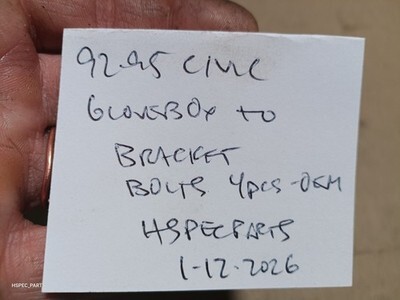 92-95 CIVIC
GLOVEBOX TO
BRACKET
BOLTS 4PCS-OEM
HSPECPARTS
1-12-2026
HSPEC_PART